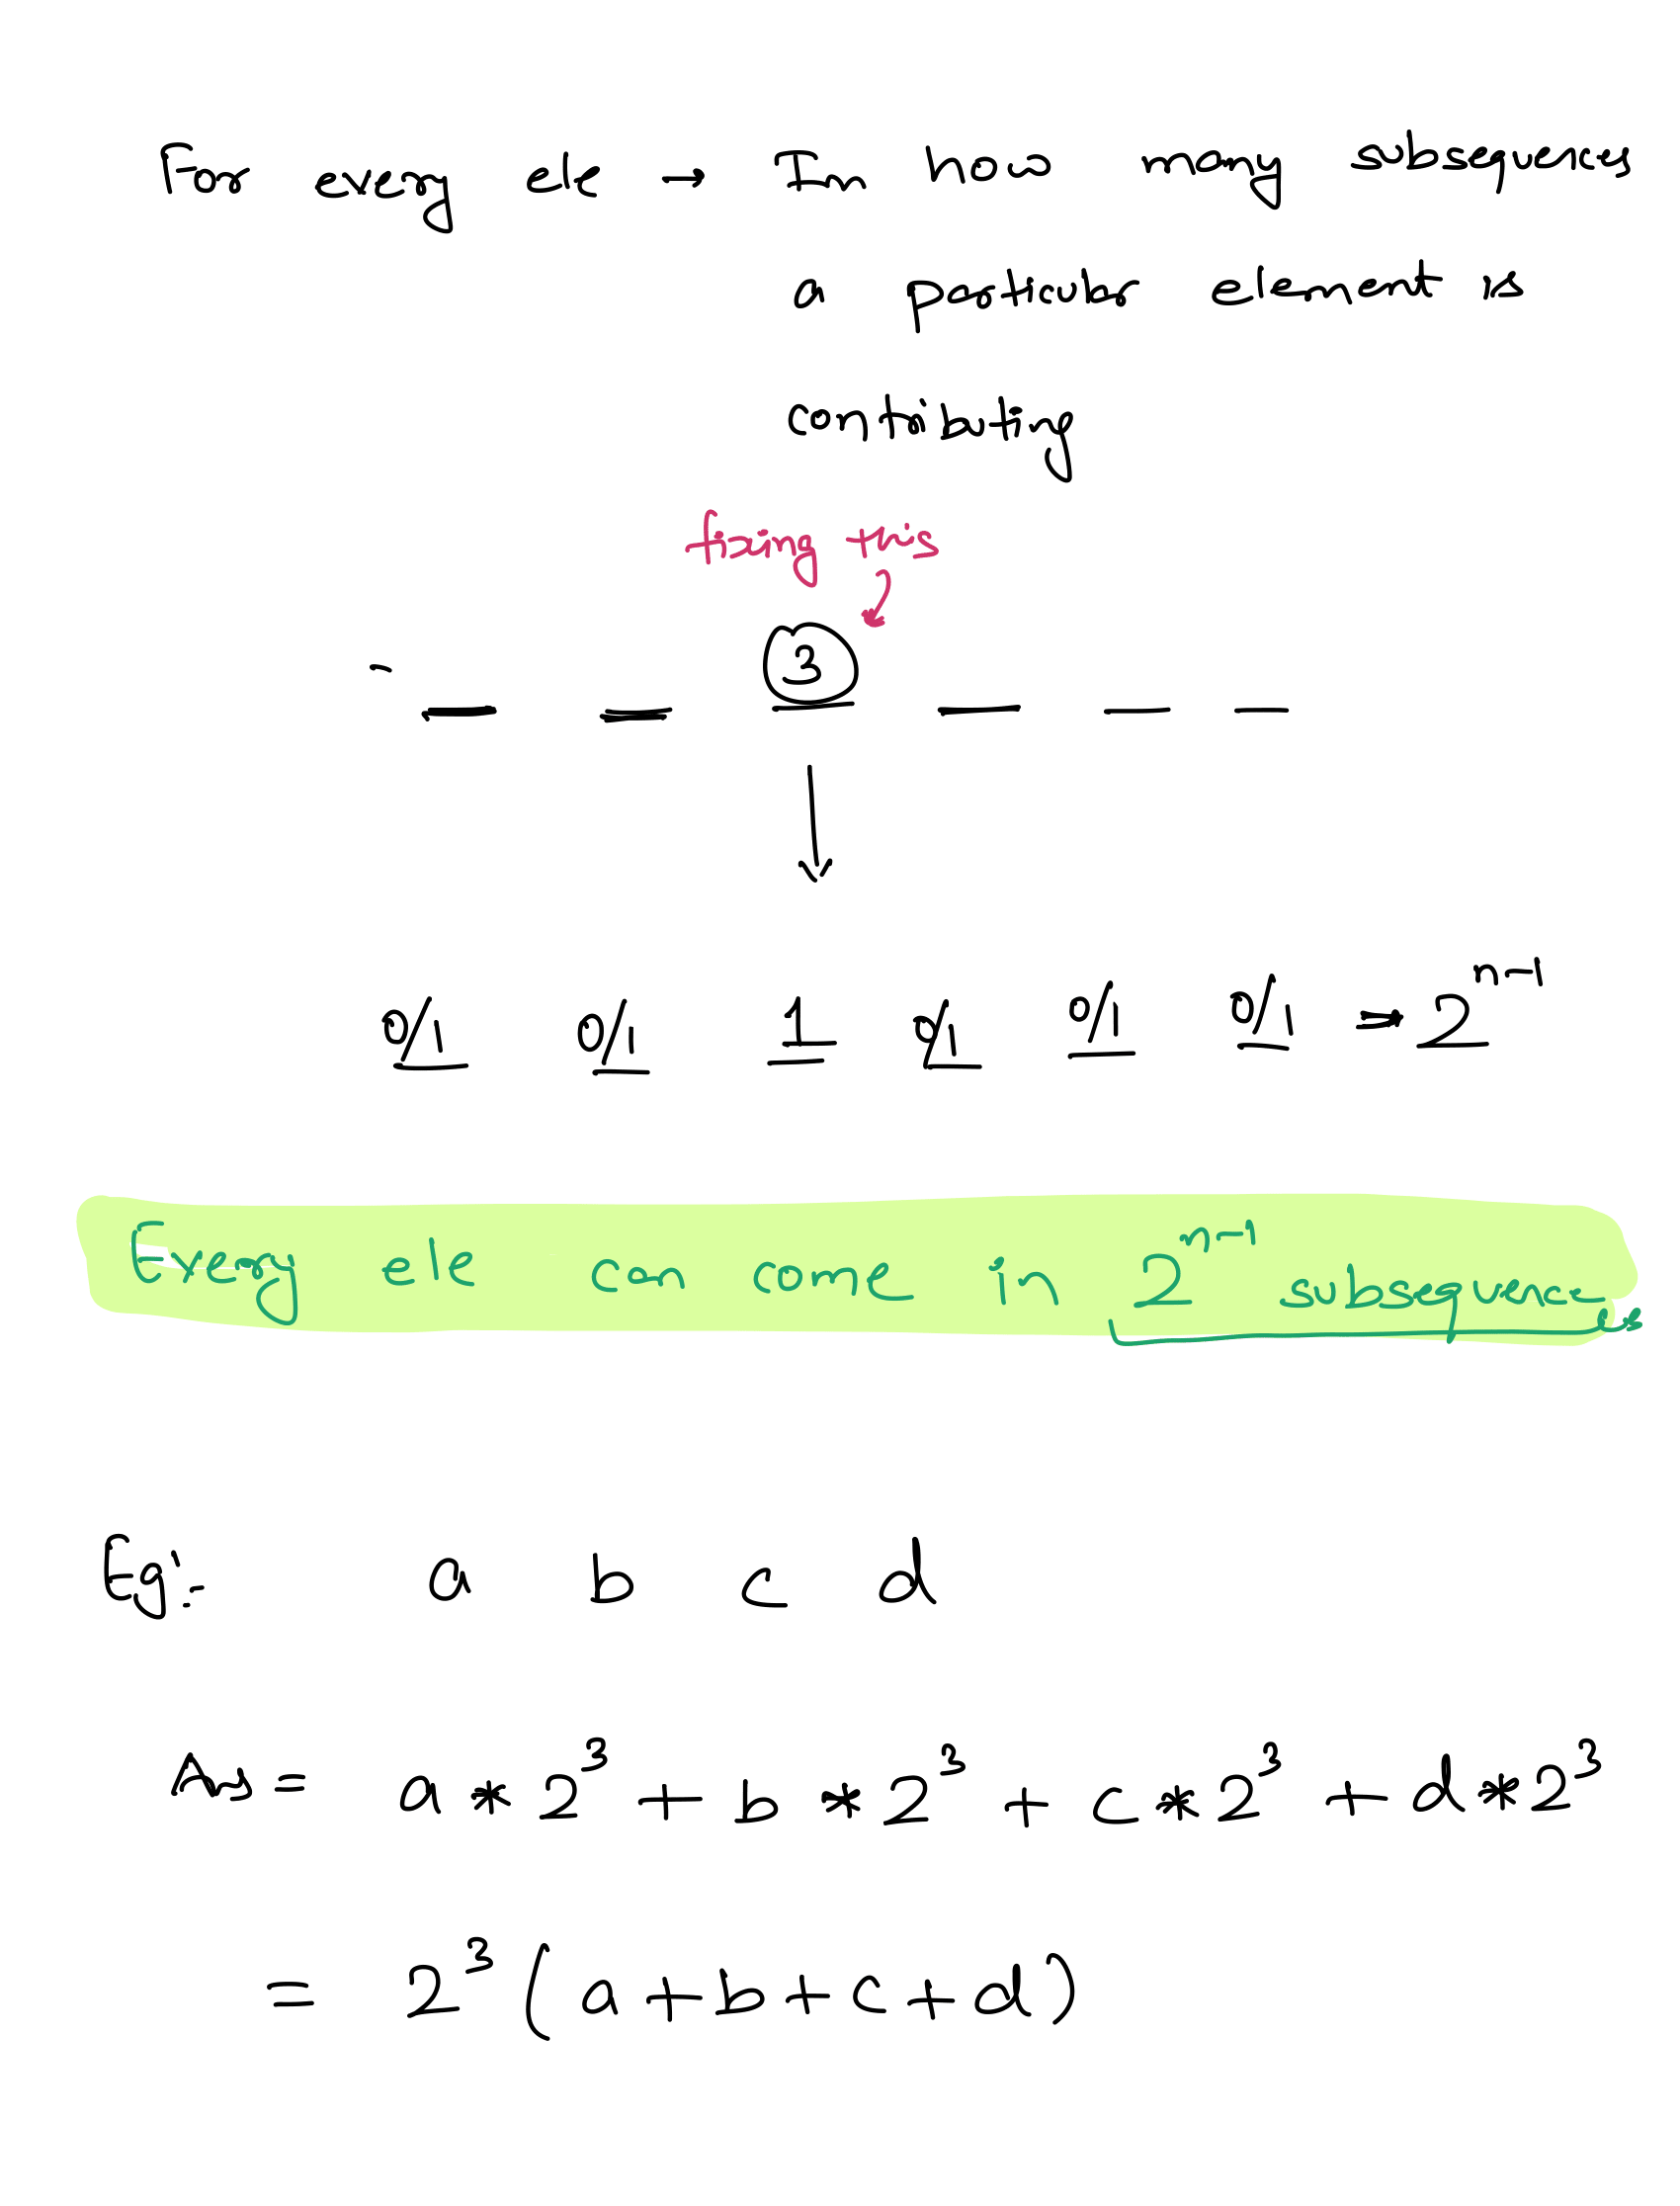 For every ele → In how many subsequences
a particular element is
contributing
fixing this
3
0/1 0/1 1 0/1 0/1 0/1 → 2^{n-1}
Every ele can come in 2^{n-1} subsequences
Eg:- a b c d
Ans = a * 2^3 + b * 2^3 + c * 2^3 + d * 2^3
= 2^3 (a + b + c + d)